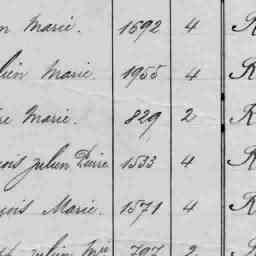 n Marie. 1692 4 R
lien Marie. 1955 4 R
re Marie. 829 2 R
çois Julien Pierre 1533 4 R
çois Marie. 1571 4 R
Julien Mie 797 2